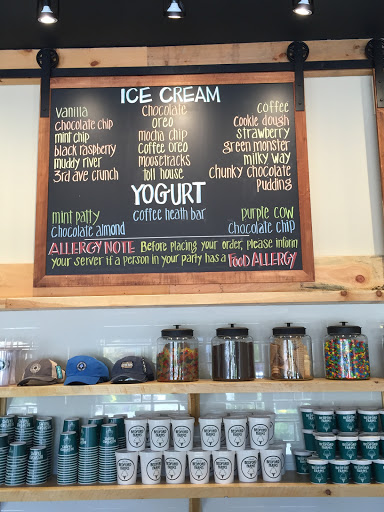 ICE CREAM
vanilla
chocolate chip
mint chip
black raspberry
muddy river
3rd ave crunch
Chocolate
oreo
mocha chip
Coffee oreo
moosetracks
toll house
coffee
Cookie dough
strawberry
green monster
milky way
chunky chocolate
Pudding
YOGURT
mint patty
chocolate almond
coffee heath bar
purple cow
chocolate chip
ALLERGY NOTE Before placing your order, please inform
your server if a person in your party has a FOOD ALLERGY